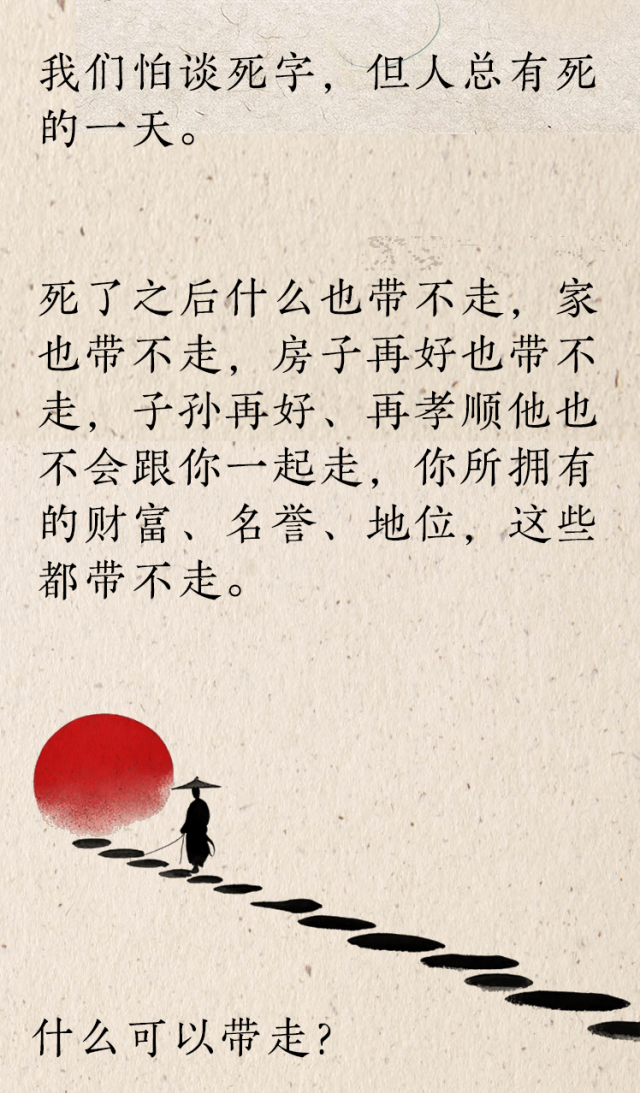 我们怕谈死字，但人总有死
的一天。
死了之后什么也带不走，家
也带不走，房子再好也带不
走，子孙再好、再孝顺他也
不会跟你一起走，你所拥有
的财富、名誉、地位，这些
都带不走。
什么可以带走？